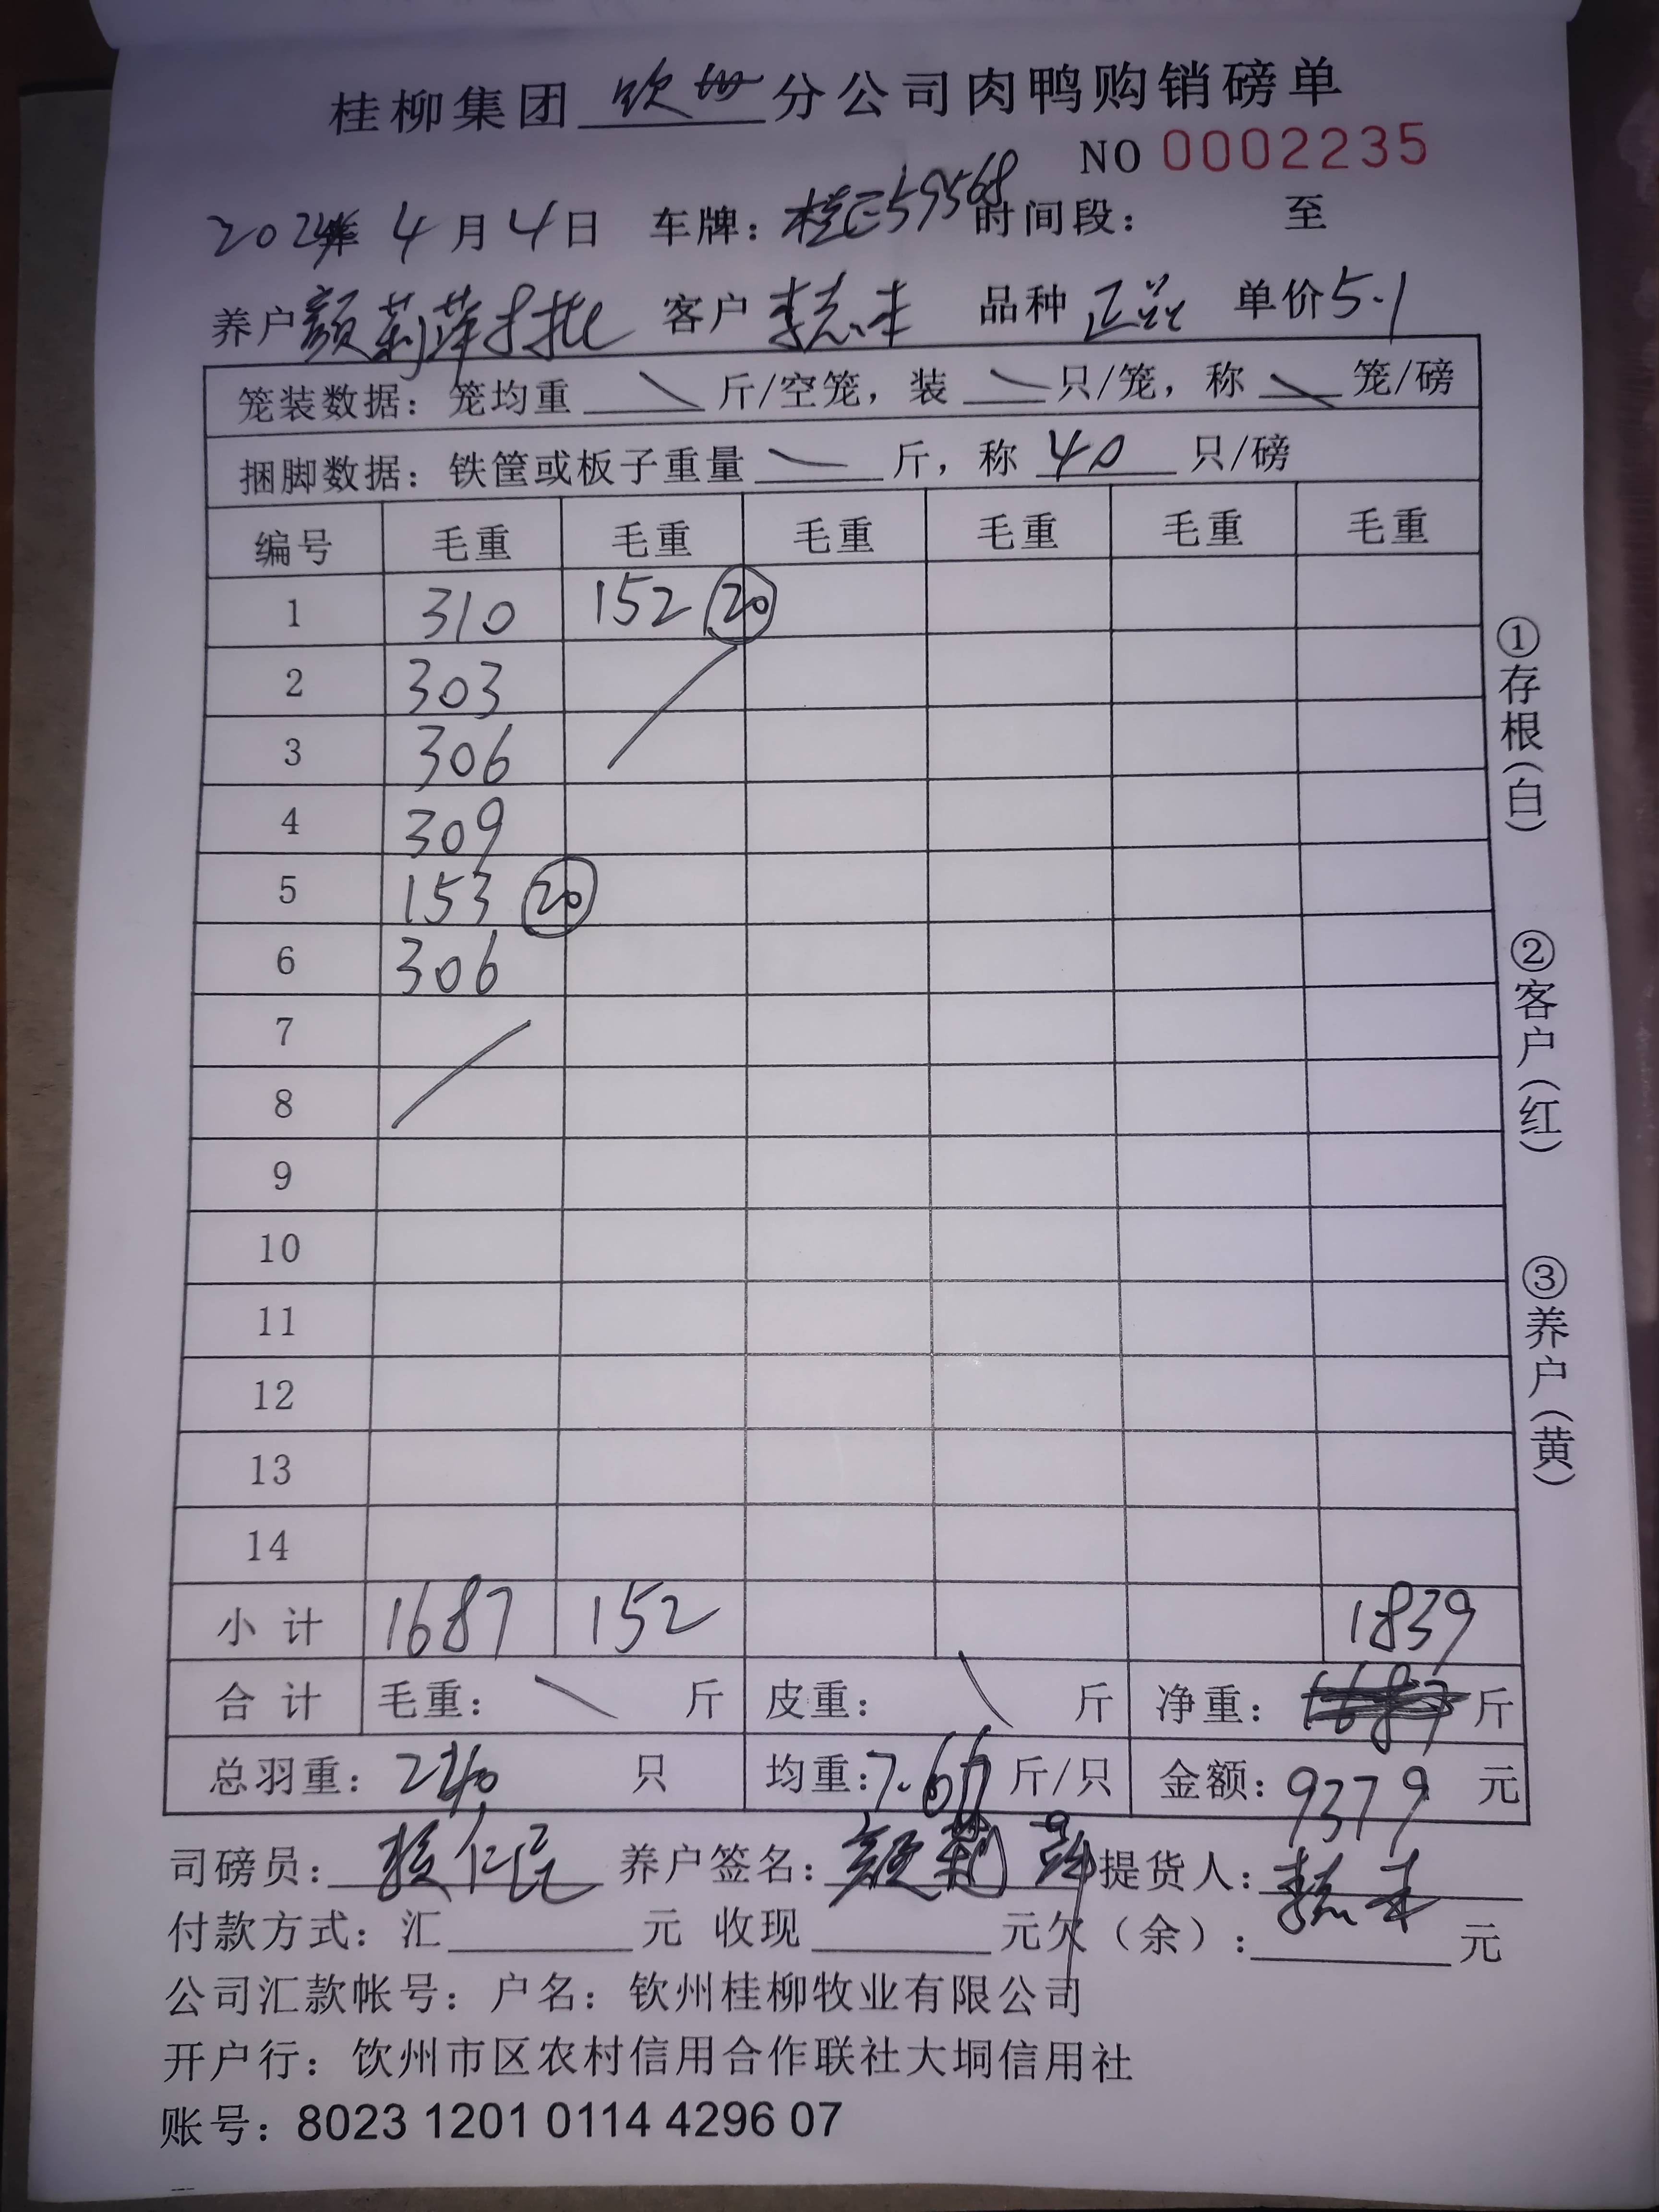 桂柳集团 钦州 分公司肉鸭购销磅单
NO 0002235
2024年 4月4日 车牌：桂E59568 时间段： 至
养户 颜莉萍 客户 李志丰 品种 正品 单价5.1
笼装数据：笼均重 斤/空笼，装 只/笼，称 笼/磅
捆脚数据：铁筐或板子重量 斤，称 40 只/磅
编号 毛重 毛重 毛重 毛重 毛重 毛重
1 310 152 20
2 303
3 306
4 309
5 153 20
6 306
7
8
9
10
11
12
13
14
小计 1687 152 1839
合计 毛重： 斤 皮重： 斤 净重： 斤
总羽重：240 只 均重：7.66 斤/只 金额：9379 元
司磅员： 养户签名：颜莉萍 提货人：李志丰
付款方式：汇 元 收现 元欠（余）： 元
公司汇款帐号：户名：钦州桂柳牧业有限公司
开户行：饮州市区农村信用合作联社大垌信用社
账号：8023 1201 0114 4296 07
①存根（白）
②客户（红）
③养户（黄）